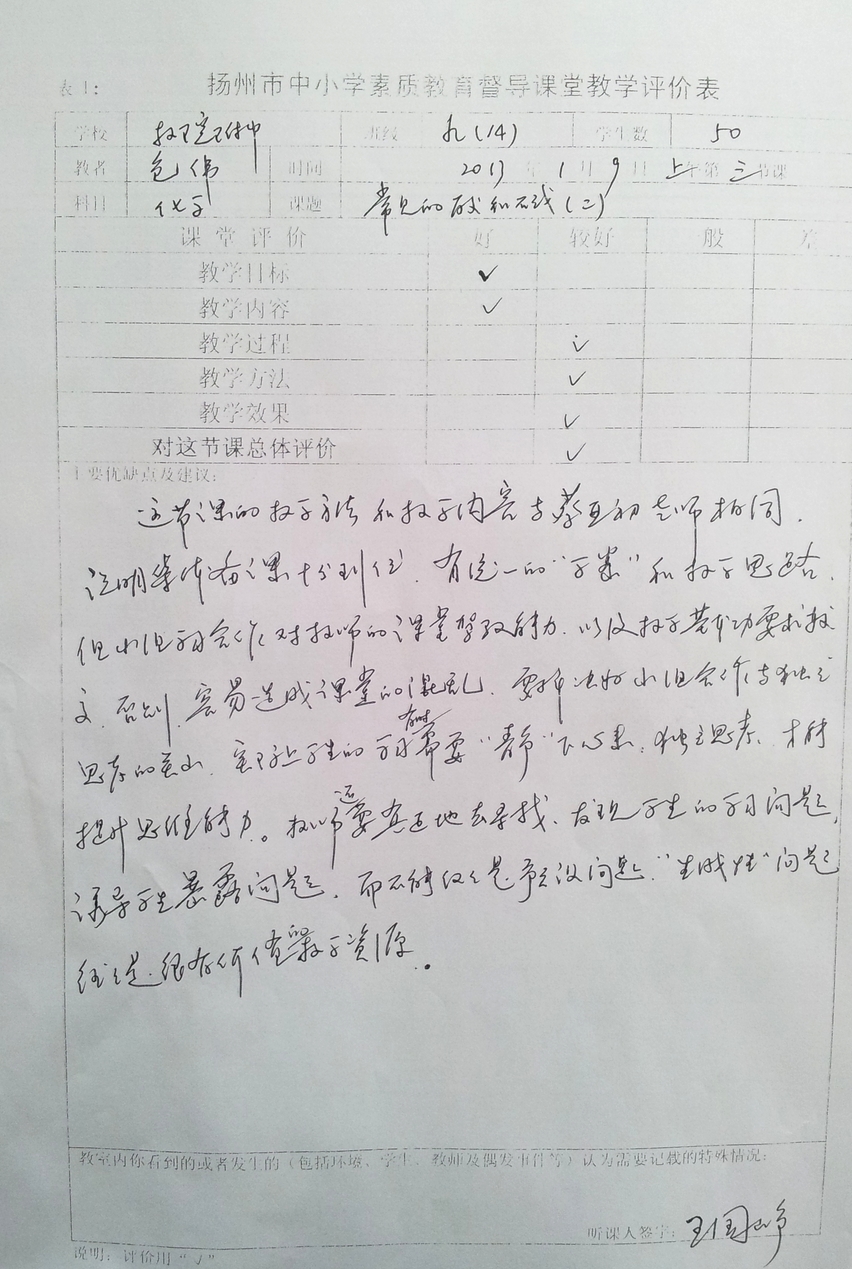 表1: 扬州市中小学素质教育督导课堂教学评价表
学校 教院附中 班级 九(14) 学生数 50
教者 包伟 时间 2013年1月9日上午第三节课
科目 化学 课题 常见的酸和碱(二)
课堂评价 好 较好 一般 差
教学目标 ✓
教学内容 ✓
教学过程 ✓
教学方法 ✓
教学效果 ✓
对这节课总体评价 ✓
主要优缺点及建议:
这节课的教学方法和教学内容与蔡亚初老师相同.
说明集体备课十分到位.有统一的“学案”和教学思路.
但小组合作对教师的课堂驾驭能力.以及教学基本功要求较
高.否则.容易造成课堂的混乱.要解决好小组合作与独立
思考的关系.实际上学生的学习有时需要“静”下心来.独立思考.才能
提升思维能力。教师还要真正地去寻找、发现学生的学习问题,
诱导学生暴露问题.而不能仅仅是预设问题.“生成性”问题
往往是很有价值的教学资源。
教室内你看到的或者发生的(包括环境、学生、教师及偶发事件等)认为需要记载的特殊情况:
听课人签字: 王国峥
说明: 评价用“√”